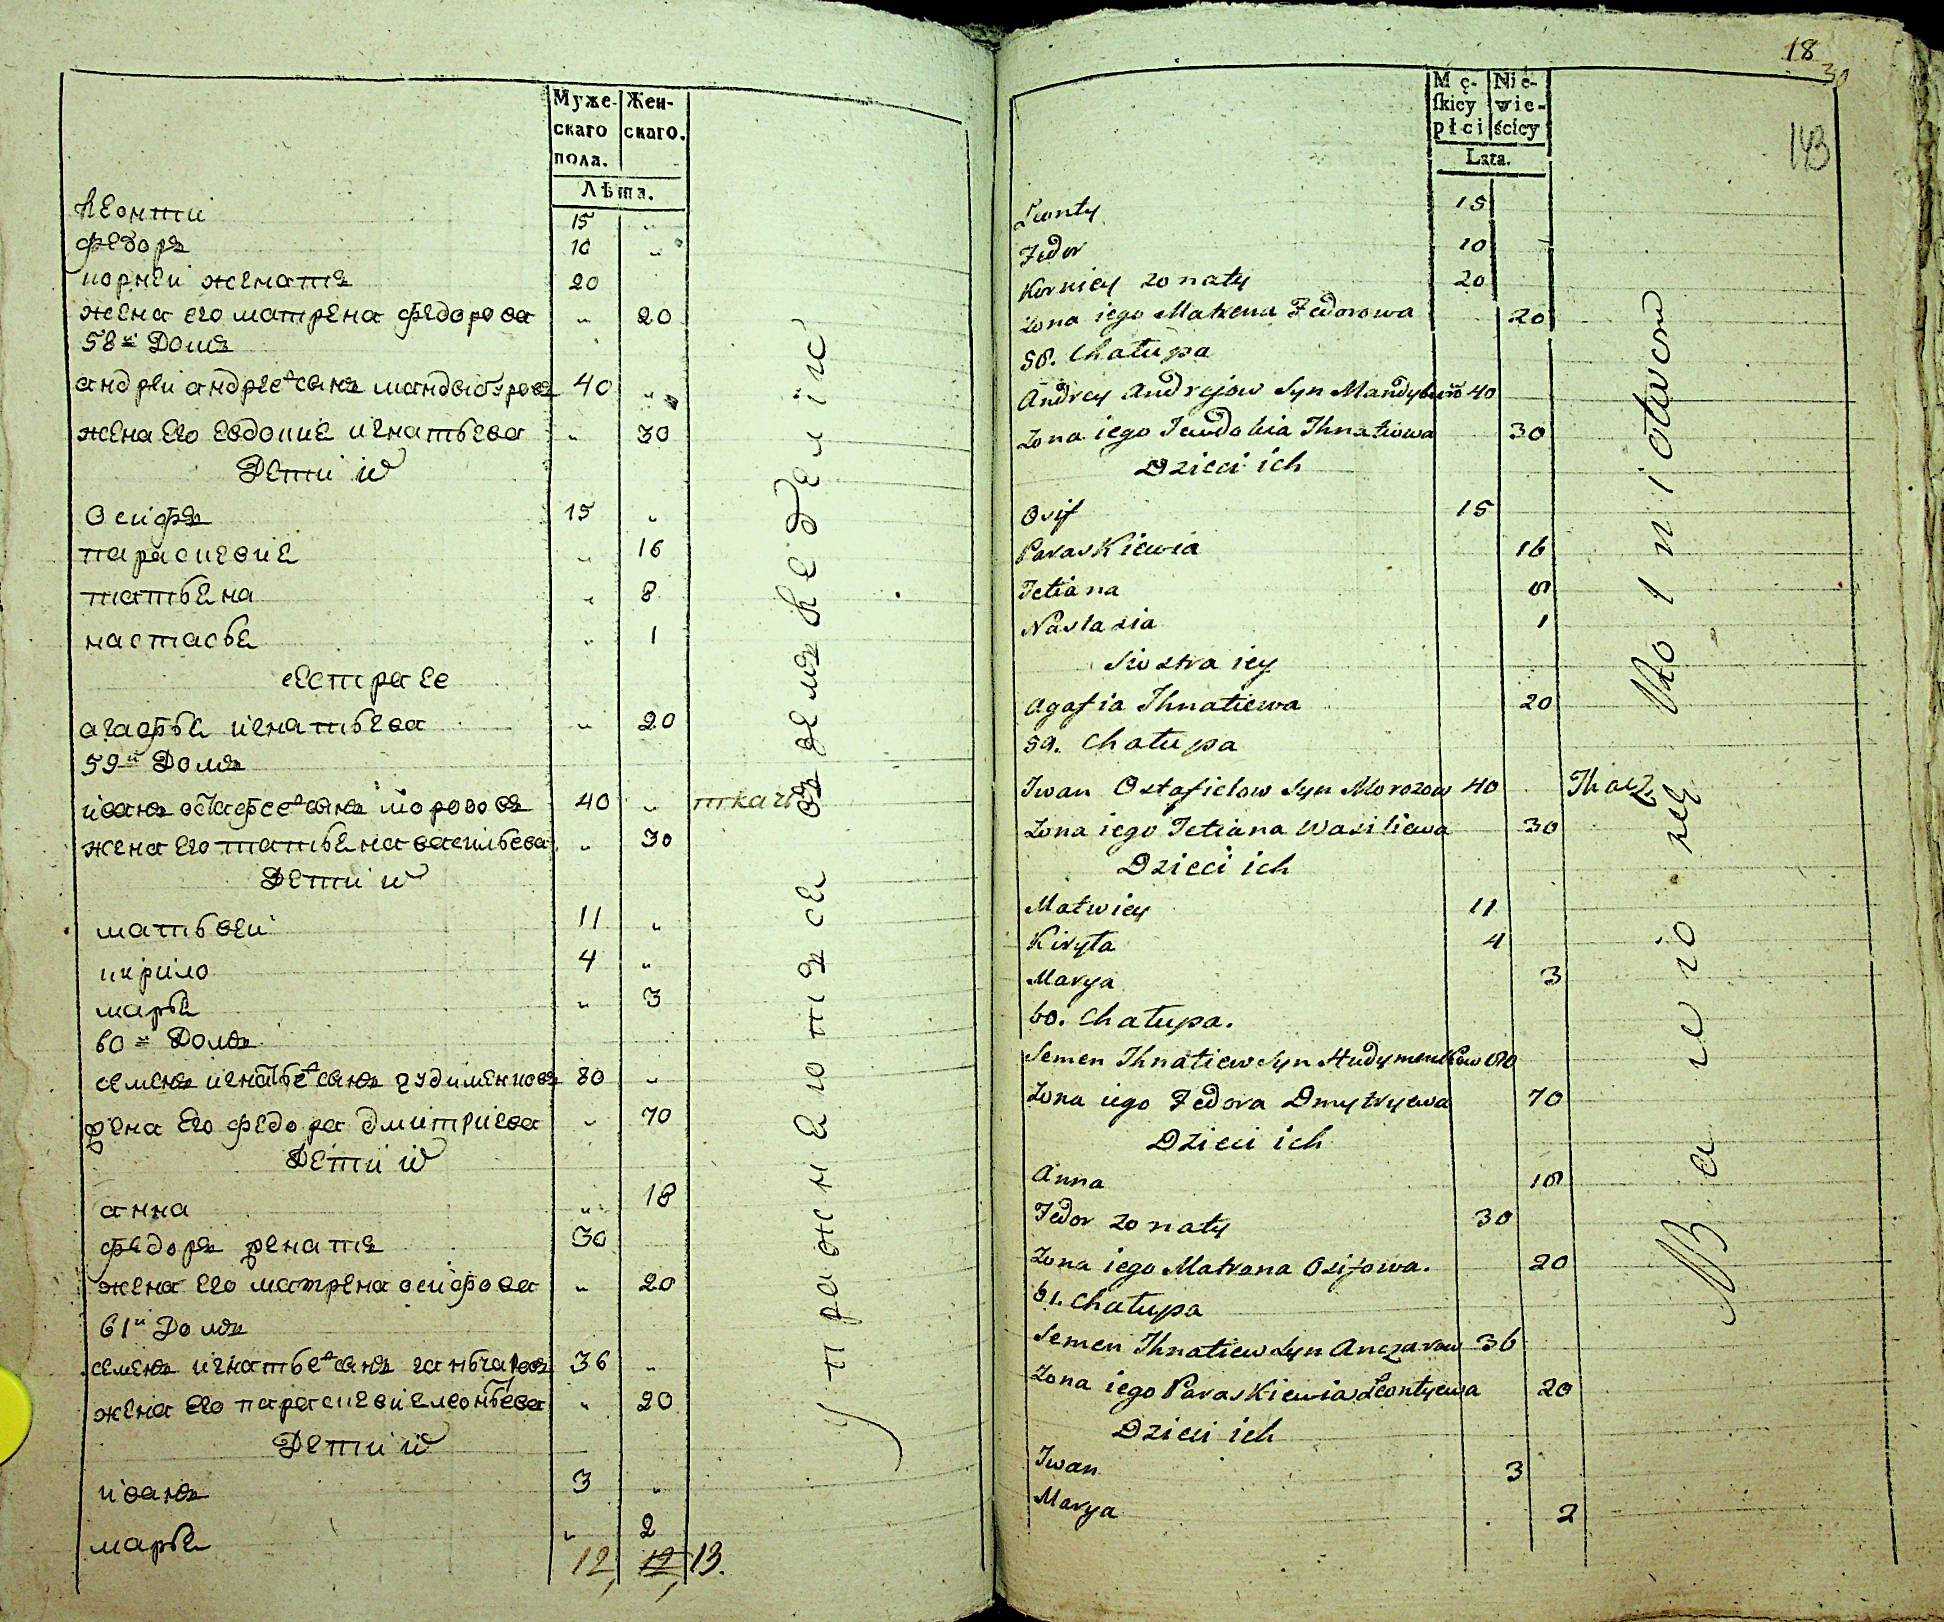 Муже-
скаго
пола.
Жен-
скаго.
Лѣта.
леонтій 15 "
федоръ 10 "
корней женатъ 20
жена его матрена федорова " 20
58й Домъ
андрей андреевъ сынъ мандыбуровъ 40 "
жена его евдокиѣ игнатьева " 30
Дети их
осифъ 15 "
парасковиѣ " 16
татьена " 8
настасьѣ " 1
сестра ее
агафьѣ игнатьева " 20
59й Домъ
иванъ остафеевъ сынъ морозовъ 40 " ткачъ
жена его татьена васильева " 30
Дети их
матьвей 11 "
кирило 4 "
марьѣ " 3
60й Домъ
семенъ игнатьевъ сынъ гудименковъ 80 "
жена его федора дмитриева " 70
Дети их
анна " 18
федоръ женатъ 30
жена его матрена осифова " 20
61й Домъ
семенъ игнатьевъ сынъ ганьчаровъ 36 "
жена его парасковиѣ леонтьева " 20
Дети их
иванъ 3 "
марьѣ " 2
12, 12, 13.
упражнѣютъся въ земледелії
18
30
143
Mę-
skiey
płci
Nie-
wie-
ściey
Lata.
Leonty 15
Fedor 10
Korniey zonaty 20
Zona iego Matrena Fedorowa 20
58. Chałupa
Andrey Andrejow Syn Mandyburow 40
Zona iego Jewdokia Ihnatiewa 30
Dzieci ich
Osif 15
Paraskiewia 16
Tetiana 8
Nastasia 1
Siostra iey
Agafia Ihnatiewa 20
59. Chałupa
Iwan Ostafielow Syn Morozow 40 Tkacz
Zona iego Tetiana Wasiliewa 30
Dzieci ich
Matwiey 11
Kiryła 4
Marya 3
60. Chałupa.
Semen Ihnatiew Syn Hudymenkow 80
Zona iego Fedora Dmytryewa 70
Dzieci ich
Anna 18
Fedor zonaty 30
Zona iego Matrona Osifowa. 20
61. Chałupa
Semen Ihnatiew Syn Anczarow 36
Zona iego Paraskiewia Leontyewa 20
Dzieci ich
Iwan 3
Marya 2
Bawio się Rolnictwem